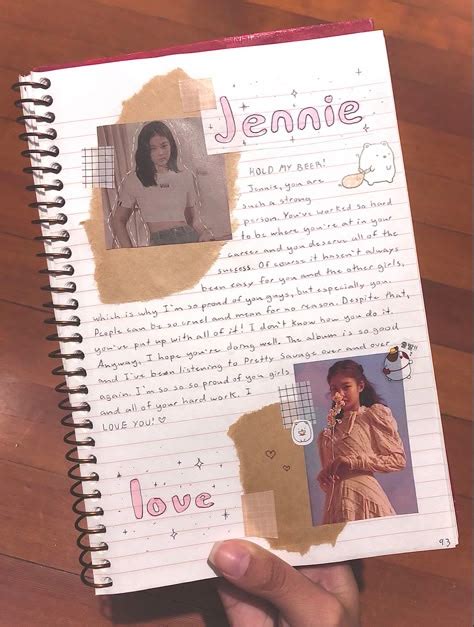 Jennie
HOLD MY BEER!
Jennie, you are
such a strong
person. You've worked so hard
to be where you're at in your
career and you deserve all of the
success. Of course it hasn't always
been easy for you and the other girls,
which is why I'm so proud of you guys, but especially you.
People can be so cruel and mean for no reason. Despite that,
you've put up with all of it! I don't know how you do it.
Anyway, I hope you're doing well. The album is so good
and I've been listening to Pretty Savage over and over
again. I'm so so so proud of you girls
and all of your hard work. I
LOVE YOU!♡
love
93